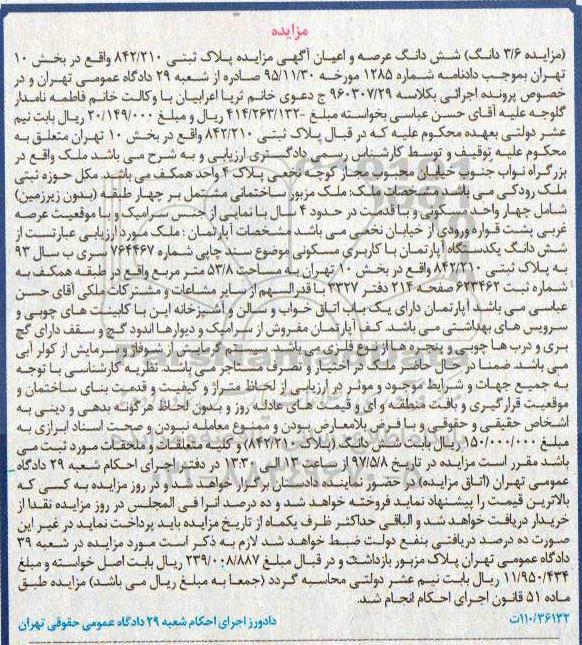 مزایده
(مزایده ۳/۶ دانگ) شش دانگ عرصه و اعیان آگهی مزایده پلاک ثبتی ۸۴۲/۲۱۰ واقع در بخش ۱۰
تهران بموجب دادنامه شماره ۱۲۸۵ مورخه ۹۵/۱۱/۳۰ صادره از شعبه ۲۹ دادگاه عمومی تهران و در
خصوص پرونده اجرائی بکلاسه ۹۶۰۳۰۷/۲۹ ج دعوی خانم ثریا اعرابیان با وکالت خانم فاطمه نامدار
گلوجه علیه آقای حسن عباسی بخواسته مبلغ ۴۱۴/۲۶۳/۱۳۲- ریال و مبلغ ۲۰/۱۴۹/۰۰۰ ریال بابت نیم
عشر دولتی بعهده محکوم علیه که در قبال پلاک ثبتی ۸۴۲/۲۱۰ واقع در بخش ۱۰ تهران متعلق به
محکوم علیه توقیف و توسط کارشناس رسمی دادگستری ارزیابی و به شرح می باشد ملک واقع در
بزرگراه نواب جنوب خیابان محبوب مجاز کوچه نخعی پلاک ۴ واحد همکف می باشد. مکل حوزه ثبتی
ملک رودکی می باشد مشخصات ملک: ملک مزبور ساختمانی مشتمل بر چهار طبقه (بدون زیرزمین)
شامل چهار واحد مسکونی و با قدمت در حدود ۴ سال با نمایی از جنس سرامیک و با موقعیت عرصه
غربی پشت قواره ورودی از خیابان نخعی می باشد مشخصات آپارتمان : ملک مورد ارزیابی عبارتست از
شش دانگ یکدستگاه آپارتمان با کاربری مسکونی موضوع سند چاپی شماره ۷۶۴۴۶۷ سری ب سال ۹۳
به پلاک ثبتی ۸۴۲/۲۱۰ واقع در بخش ۱۰ تهران به مساحت ۵۳/۸ متر مربع واقع در طبقه همکف به
شماره ثبت ۶۲۳۴۶۲ صفحه ۲۱۴ دفتر ۲۳۲۷ با قدرالسهم از سایر مشاعات و مشترکات ملکی آقای حسن
عباسی می باشد آپارتمان دارای یک باب اتاق خواب و سالن و آشپزخانه اپن با کابینت های چوبی و
سرویس های بهداشتی می باشد. کف آپارتمان مفروش از سرامیک و دیوارها اندود گچ و سقف دارای گچ
بری و درب ها چوبی و پنجره ها از نوع فلزی می باشد سیستم گرمایش از شوفاژ و سرمایش از کولر آبی
می باشد. ضمنا در حال حاضر ملک در اختیار و تصرف مستاجر می باشد. نظریه کارشناسی با توجه
به جمیع جهات و شرایط موجود و موثر در ارزیابی از لحاظ متراژ و کیفیت و قدمت بنای ساختمان و
موقعیت قرارگیری و بافت منطقه و ای و قیمت های عادله روز و بدون لحاظ هرگونه بدهی و دینی به
اشخاص حقیقی و حقوقی و با فرض بلامعارض بودن و ممنوع معامله نبودن و صحت اسناد ابرازی به
مبلغ ۱۵۰/۰۰۰/۰۰۰ ریال بابت شش دانگ (پلاک ۸۴۲/۲۱۰) و کلیه متعلقات و ملحقات مورد ثبت می
باشد مقرر است مزایده در تاریخ ۹۷/۵/۸ از ساعت ۱۲ الی ۱۳:۳۰ در دفتر اجرای احکام شعبه ۲۹ دادگاه
عمومی تهران (اتاق مزایده) در حضور نماینده دادستان برگزار خواهد شد و در روز مزایده به کسی که
بالاترین قیمت را پیشنهاد نماید فروخته خواهد شد و ده درصد آنرا فی المجلس در روز مزایده نقدا از
خریدار دریافت خواهد شد و الباقی حداکثر ظرف یکماه از تاریخ مزایده باید پرداخت نماید در غیر این
صورت ده درصد دریافتی بنفع دولت ضبط خواهد شد لازم به ذکر است مورد مزایده در شعبه ۳۹
دادگاه عمومی تهران پلاک مزبور بازداشت و در قبال مبلغ ۲۳۹/۰۰۸/۸۸۷ ریال بابت اصل خواسته و مبلغ
۱۱/۹۵۰/۴۳۴ ریال بابت نیم عشر دولتی محاسبه گردد (جمعا به مبلغ ریال می باشد) مزایده طبق
ماده ۵۱ قانون اجرای احکام انجام شد.
۱۱۰/۳۶۱۳۲ت
دادورز اجرای احکام شعبه ۲۹ دادگاه عمومی حقوقی تهران